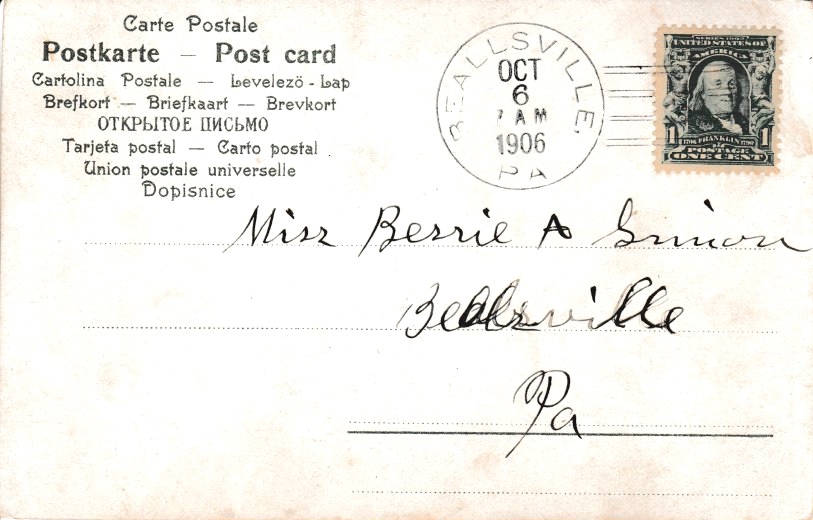 Carte Postale
Postkarte — Post card
Cartolina Postale — Levelezö-Lap
Brefkort — Briefkaart — Brevkort
ОТКРЫТОЕ ПИСЬМО
Tarjeta postal — Carto postal
Union postale universelle
Dopisnice
BEALLSVILLE,
OCT
6
7 AM
1906
PA
SERIES 1902
UNITED STATES OF
AMERICA
1 FRANKLIN 1
POSTAGE
ONE CENT
Miss Bessie A
Beallsville
Pa